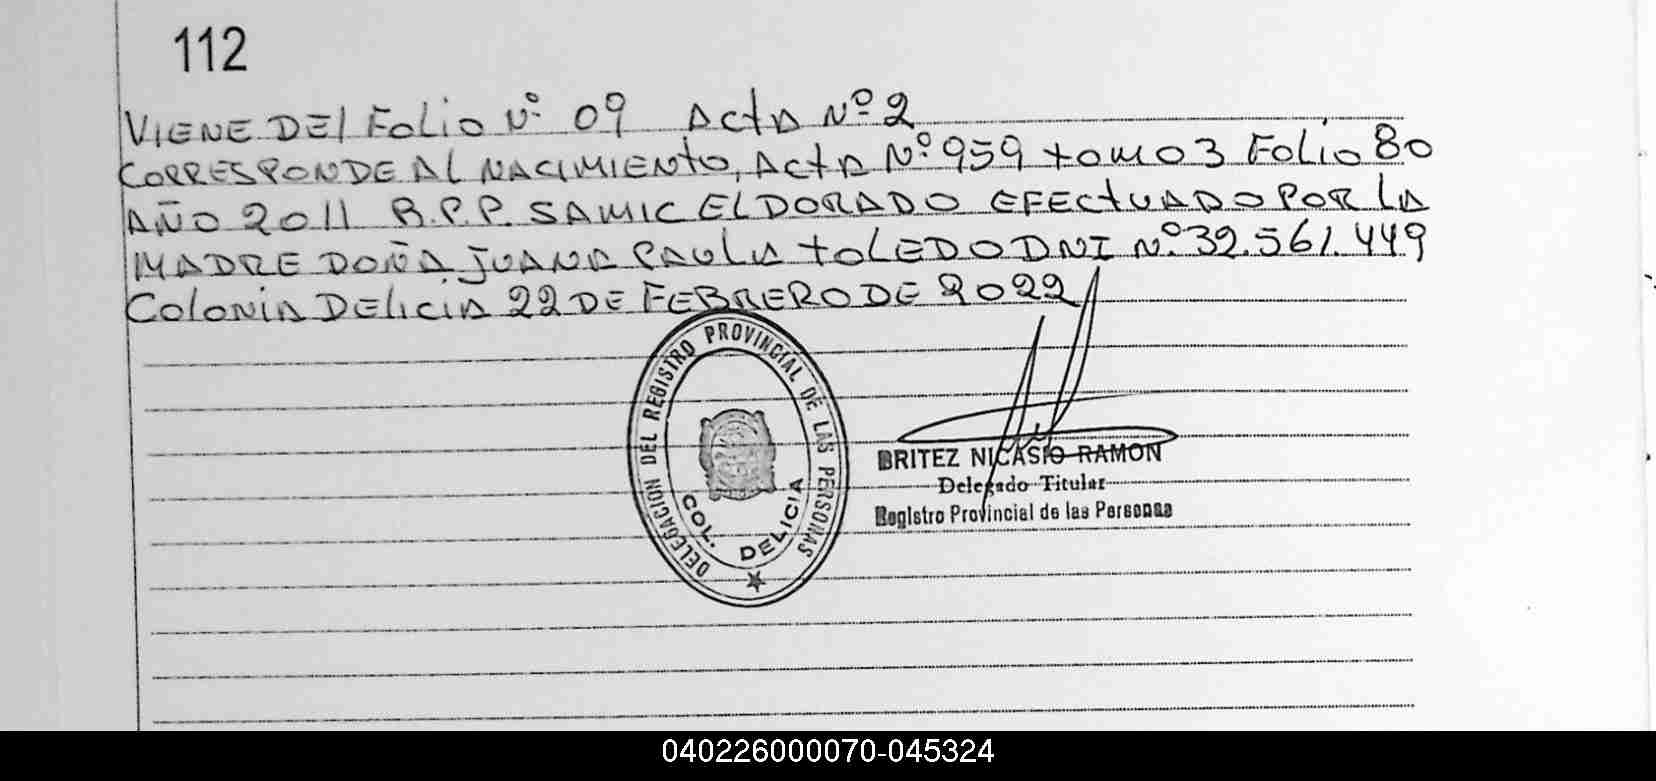 112
VIENE DEL FOLIO Nº 09 ACTA Nº 2
CORRESPONDE AL NACIMIENTO, ACTA Nº 959 TOMO 3 FOLIO 80
AÑO 2011 R.P.P. SAMIC ELDORADO EFECTUADO POR LA
MADRE DOÑA JUANA PAULA TOLEDO DNI Nº 32.561.449
COLONIA DELICIA 22 DE FEBRERO DE 2022
DELEGACION DEL REGISTRO PROVINCIAL DE LAS PERSONAS
COL. DELICIA
BRITEZ NICASIO RAMON
Delegado Titular
Registro Provincial de las Personas
040226000070-045324